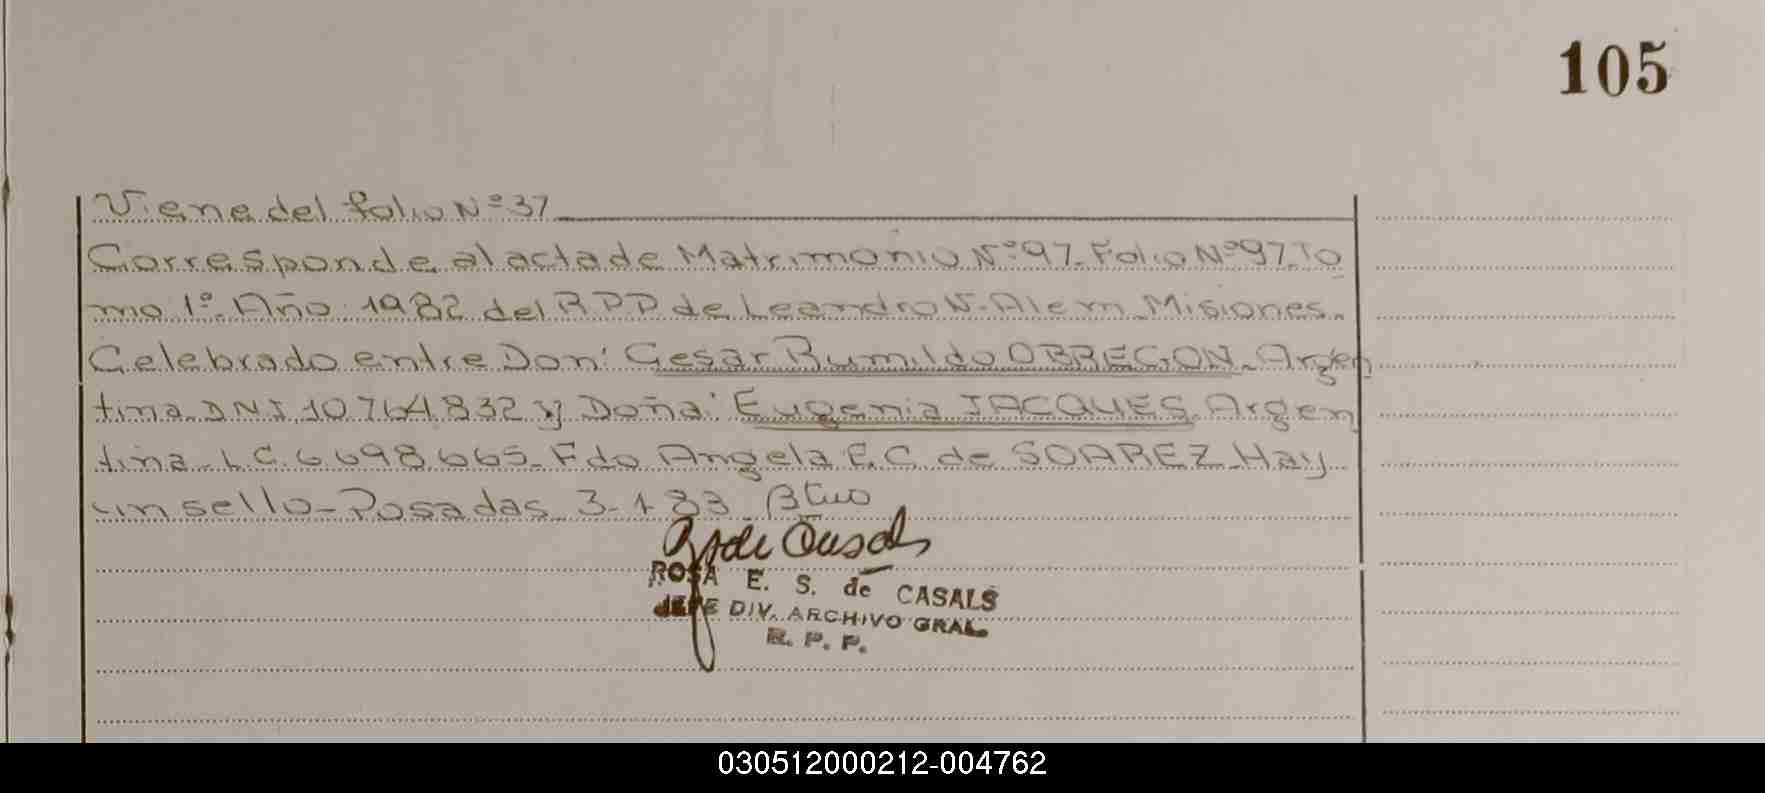 105
Viene del folio Nº 37
Corresponde al acta de Matrimonio Nº 97. Folio Nº 97. To
mo 1º. Año 1982 del RPP de Leandro N. Alem - Misiones.
Celebrado entre Don: Cesar Rumildo OBREGON - Argen
tina DNI 10.764.832 y Doña: Eugenia JACQUES. Argen
tina - L.C. 6698665 - Fdo Angela E.C. de SOAREZ. Hay
un sello - Posadas 3-1-83
ROSA E. S. de CASALS
JEFE DIV. ARCHIVO GRAL.
R. P. P.
030512000212-004762